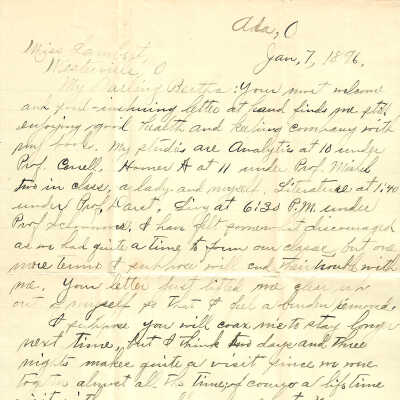 Ada, O
Jan, 7, 1896.
Miss Lambert,
Westerville, O
My Darling Bertha: Your most welcome
and good-inspiring letter at hand finds me still
enjoying good health and keeping company with
my books. My studies are Analytics at 10 under
Prof. Homer A at 11 under Prof.
two in class, a lady and myself, Literature at 1:40
under Prof. Darst. Livy at 6:30 P.M. under
Prof I have felt somewhat discouraged
as we had quite a time to form our classes, but one
more term I suppose will end their trouble with
me. Your letter just lifted me clear up
out of myself so that I feel a burden removed.
I suppose you will coax me to stay longer
next time, but I think two days and three
nights makes quite a visit since we were
together almost all the time, of course a lifetime